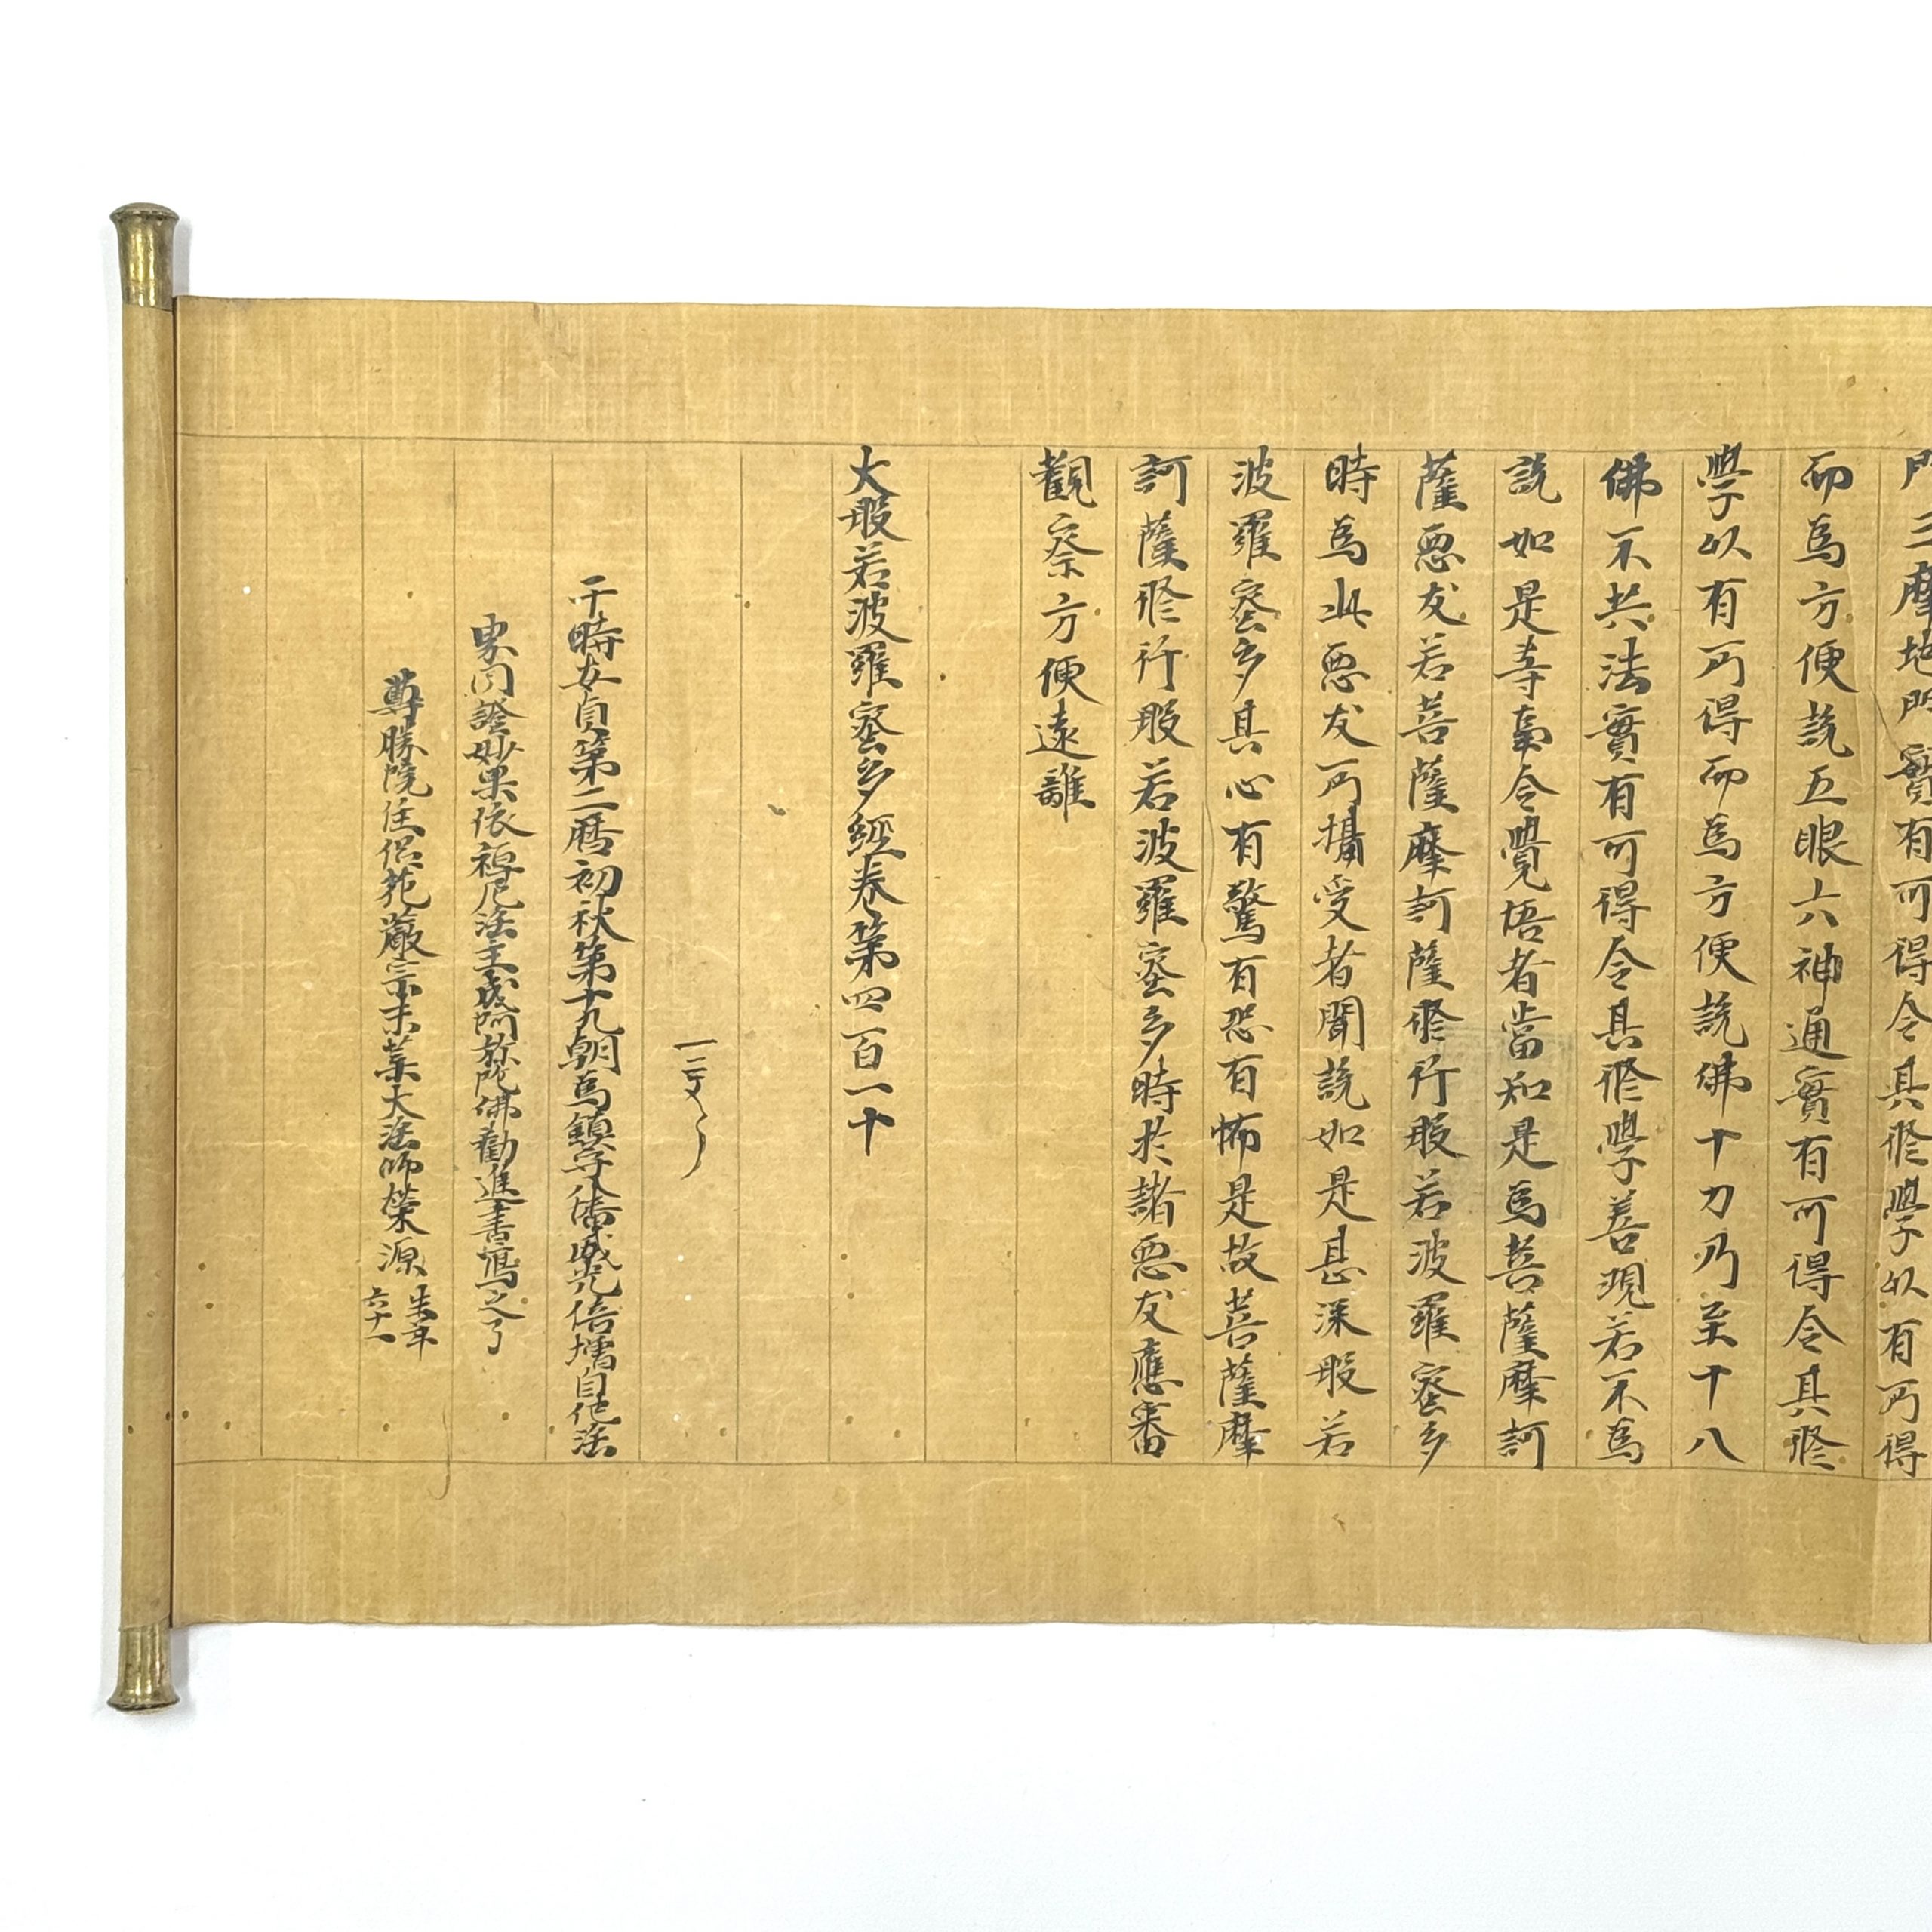 門三摩地門實有可得令其修學以有所得
而爲方便說五眼六神通實有可得令其修
學以有所得而爲方便說佛十力乃至十八
佛不共法實有可得令其修學善現若不爲
說如是等事令覺悟者當知是爲菩薩摩訶
薩惡友若菩薩摩訶薩修行般若波羅蜜多
時爲此惡友所攝受者聞說如是甚深般若
波羅蜜多其心有驚有恐有怖是故菩薩摩
訶薩修行般若波羅蜜多時於諸惡友應審
觀察方便遠離
大般若波羅蜜多經卷第四百一十
一交了
于時安貞第二曆初秋第十九朝爲鎮守八幡威光倍增自他法
界同證妙果依禪尼法主成阿弥陀佛勸進書寫之了
尊勝院住侶花嚴宗末葉大法師榮源 生年六十一